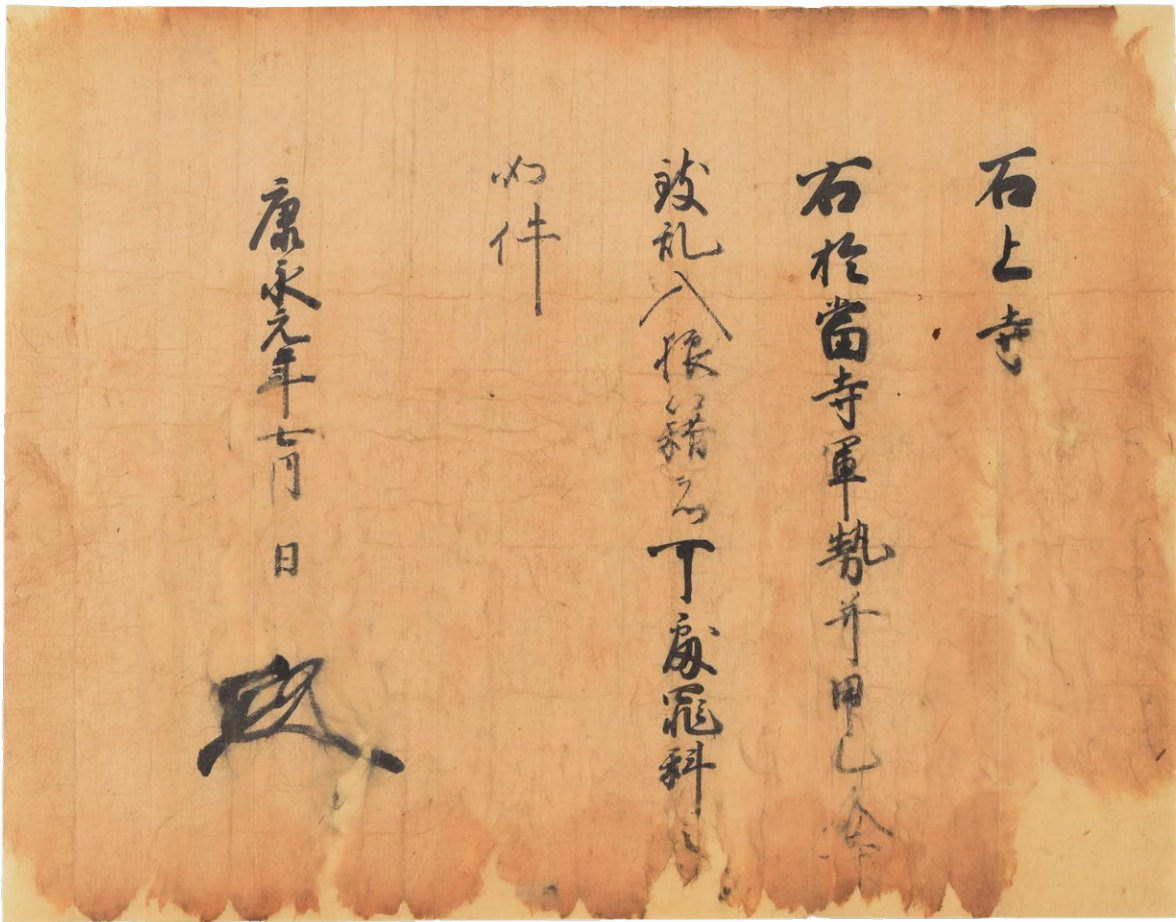 石上寺
右於當寺軍勢并甲乙人等
致乱入狼籍者可處罪科之状
如件
康永元年七月　日